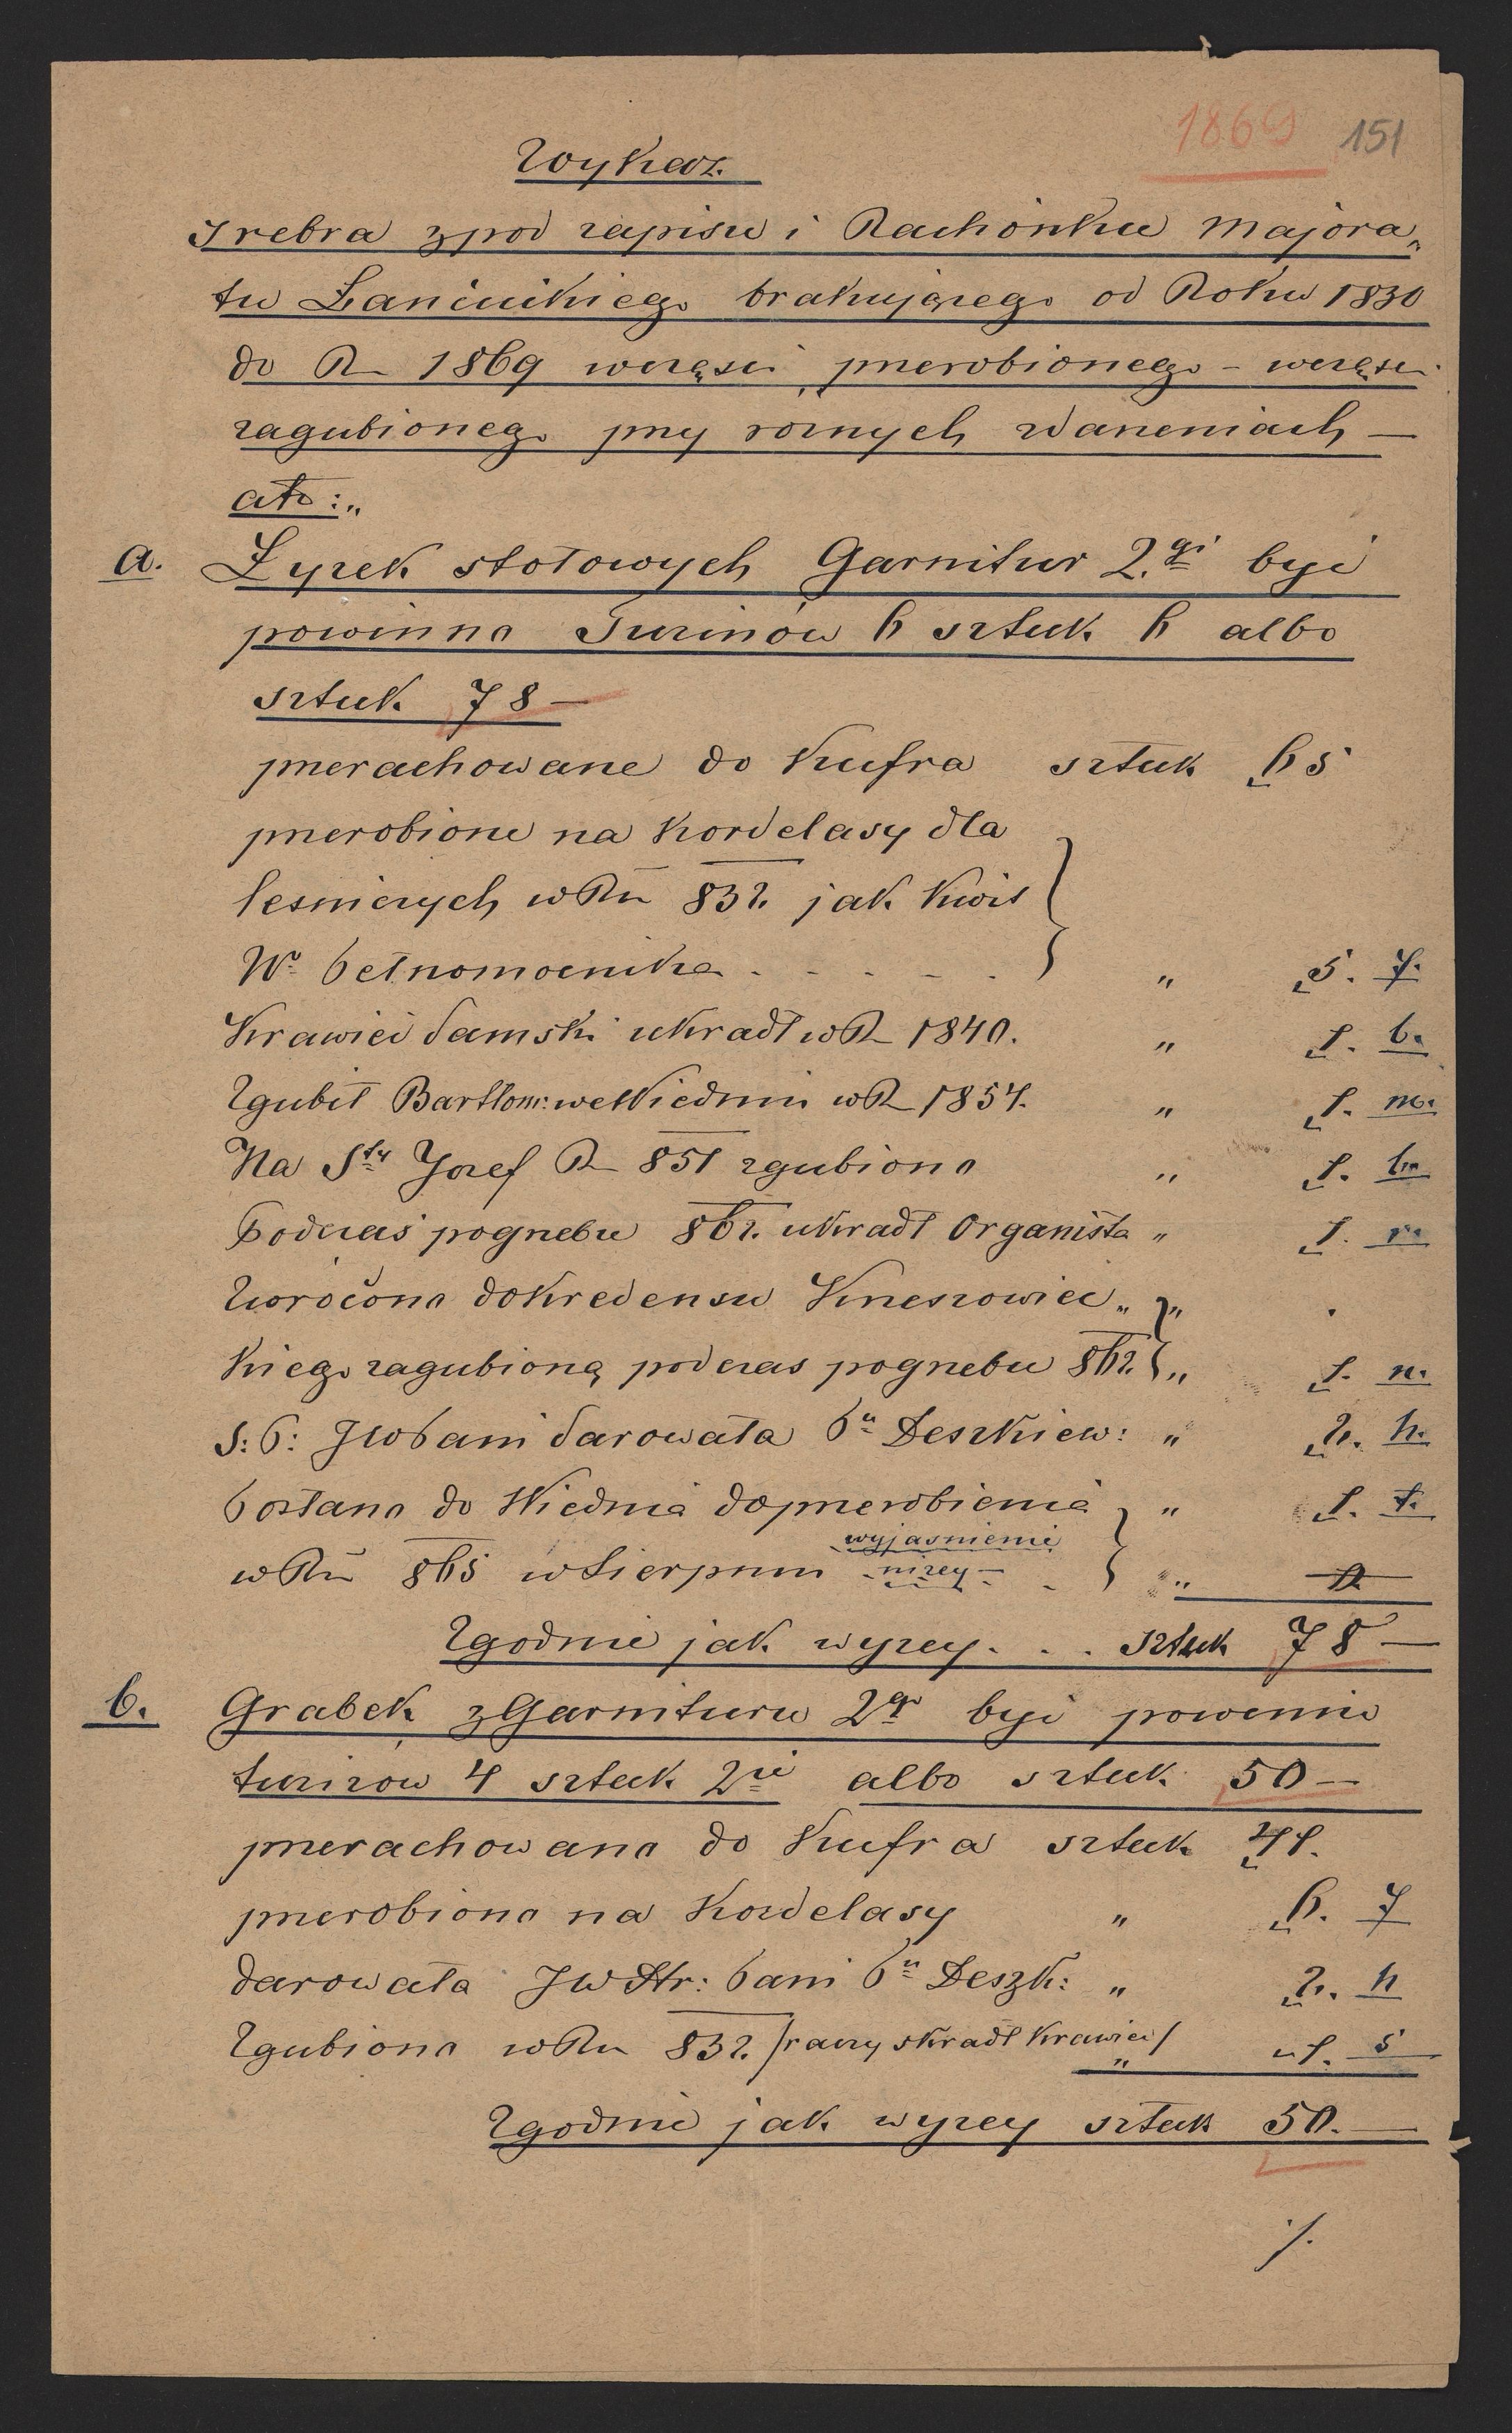 1869 151
Wykaz.
Srebra z pod zapisu i Rachónku Majora„
tu Łańcuckiego brakującego od Roku 1830
do R 1869 wczęści przerobionego – wczęści
zagubionego przy roznych zdarzeniach —
ato:„
a. Łyżek stołowych Garnitur 2.gi być
powinno Tuzinów 6 sztuk 6 albo
sztuk 78 —
przerachowane do Kufra sztuk 65
przerobione na Kordelasy dla
lesniczych w Ru 832. jak Kwit
Wo Pełnomocnika - - - - - „ 5. 7.
Krawiec damski ukradł w R 1840. „ 1. b.
Zgubił Bartłom: we Wiedniu w R 1854. „ 1. m.
Na Sty Jozef R 851 zgubiono „ 1.
Podczas pogrzebu 862. ukradł Organista „ 1. r.
Zwrócono do Kredensu Krzeszowiec„ „
Kiego zagubioną podczas pogrzebu 862. „ 1. n.
S: P: JWPani darowała Pu Deszkiew: „ 2. h.
Posłano do Wiednia do przerobienia „ 1. t.
w Ru 865 w Sierpniu wyjasnienie
- nizey - -
Zgodnie jak wyzey. . . Sztuk 78 —
b. Grabek z Garnituru 2go być powinno
tuzinow 4 sztuk 2ie albo sztuk 50 —
przerachowano do Kufra sztuk 41.
przerobiono na Kordelasy „ 6. 7
darowała JW Hr: Pani Pu Deszk: „ 2. h
Zgubiono w Ru 832. /raczy skradł Krawiec/ „ 1. s
Zgodnie jak wyzey sztuk 50. —
./.